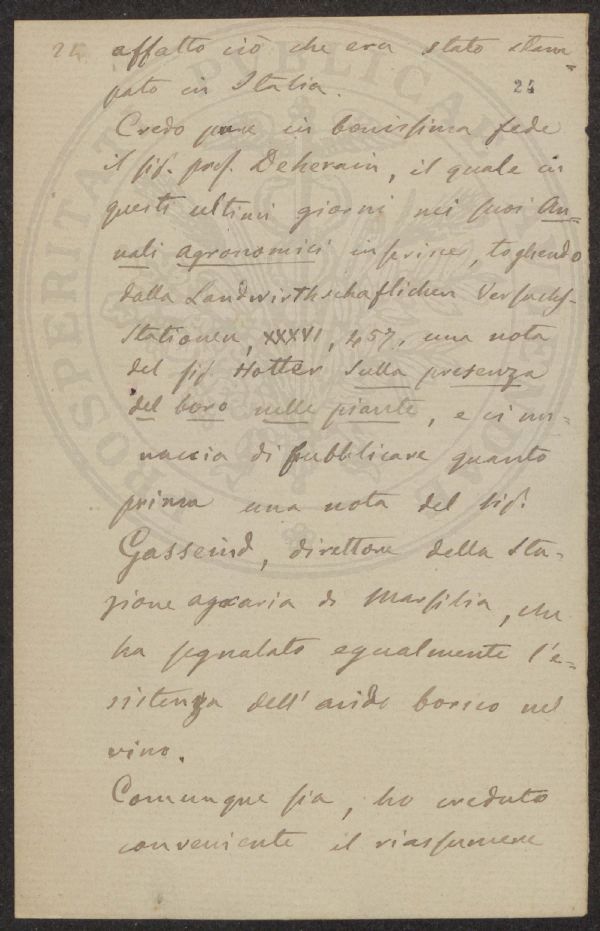 24 affatto ciò che era stato stam=
pato in Italia. 24
Credo pure in bonissima fede
il sig. prof. Deherain, il quale in
questi ultimi giorni nei suoi An=
nali agronomici inserisce, togliendo
dalla Landwirthschaflichen Versuchs-
Stationen, XXXVI, 457, una nota
del sig. Hotter Sulla presenza
del boro nelle piante, e ci mi=
naccia di pubblicare quanto
prima una nota del sig.
Gasseind, direttore della Sta-
zione agraria di Marsilia, che
ha segnalato egualmente l'e=
sistenza dell'acido borico nel
vino.
Comunque sia, ho creduto
conveniente il riassumere
PROSPERITATI PUBLICAE AUGENDAE